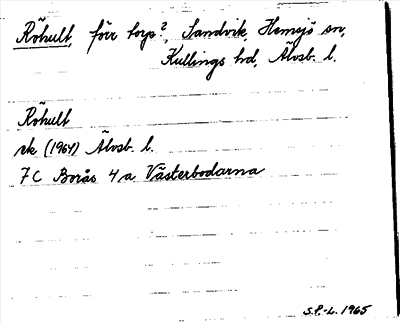 Röhult, förr torp?, Sandvik, Hemsjö sn,
Kullings hd, Älvsb. l.
Röhult
ek (1964) Älvsb. l.
7C Borås 4a Västerbodarna
S.P.-L. 1965